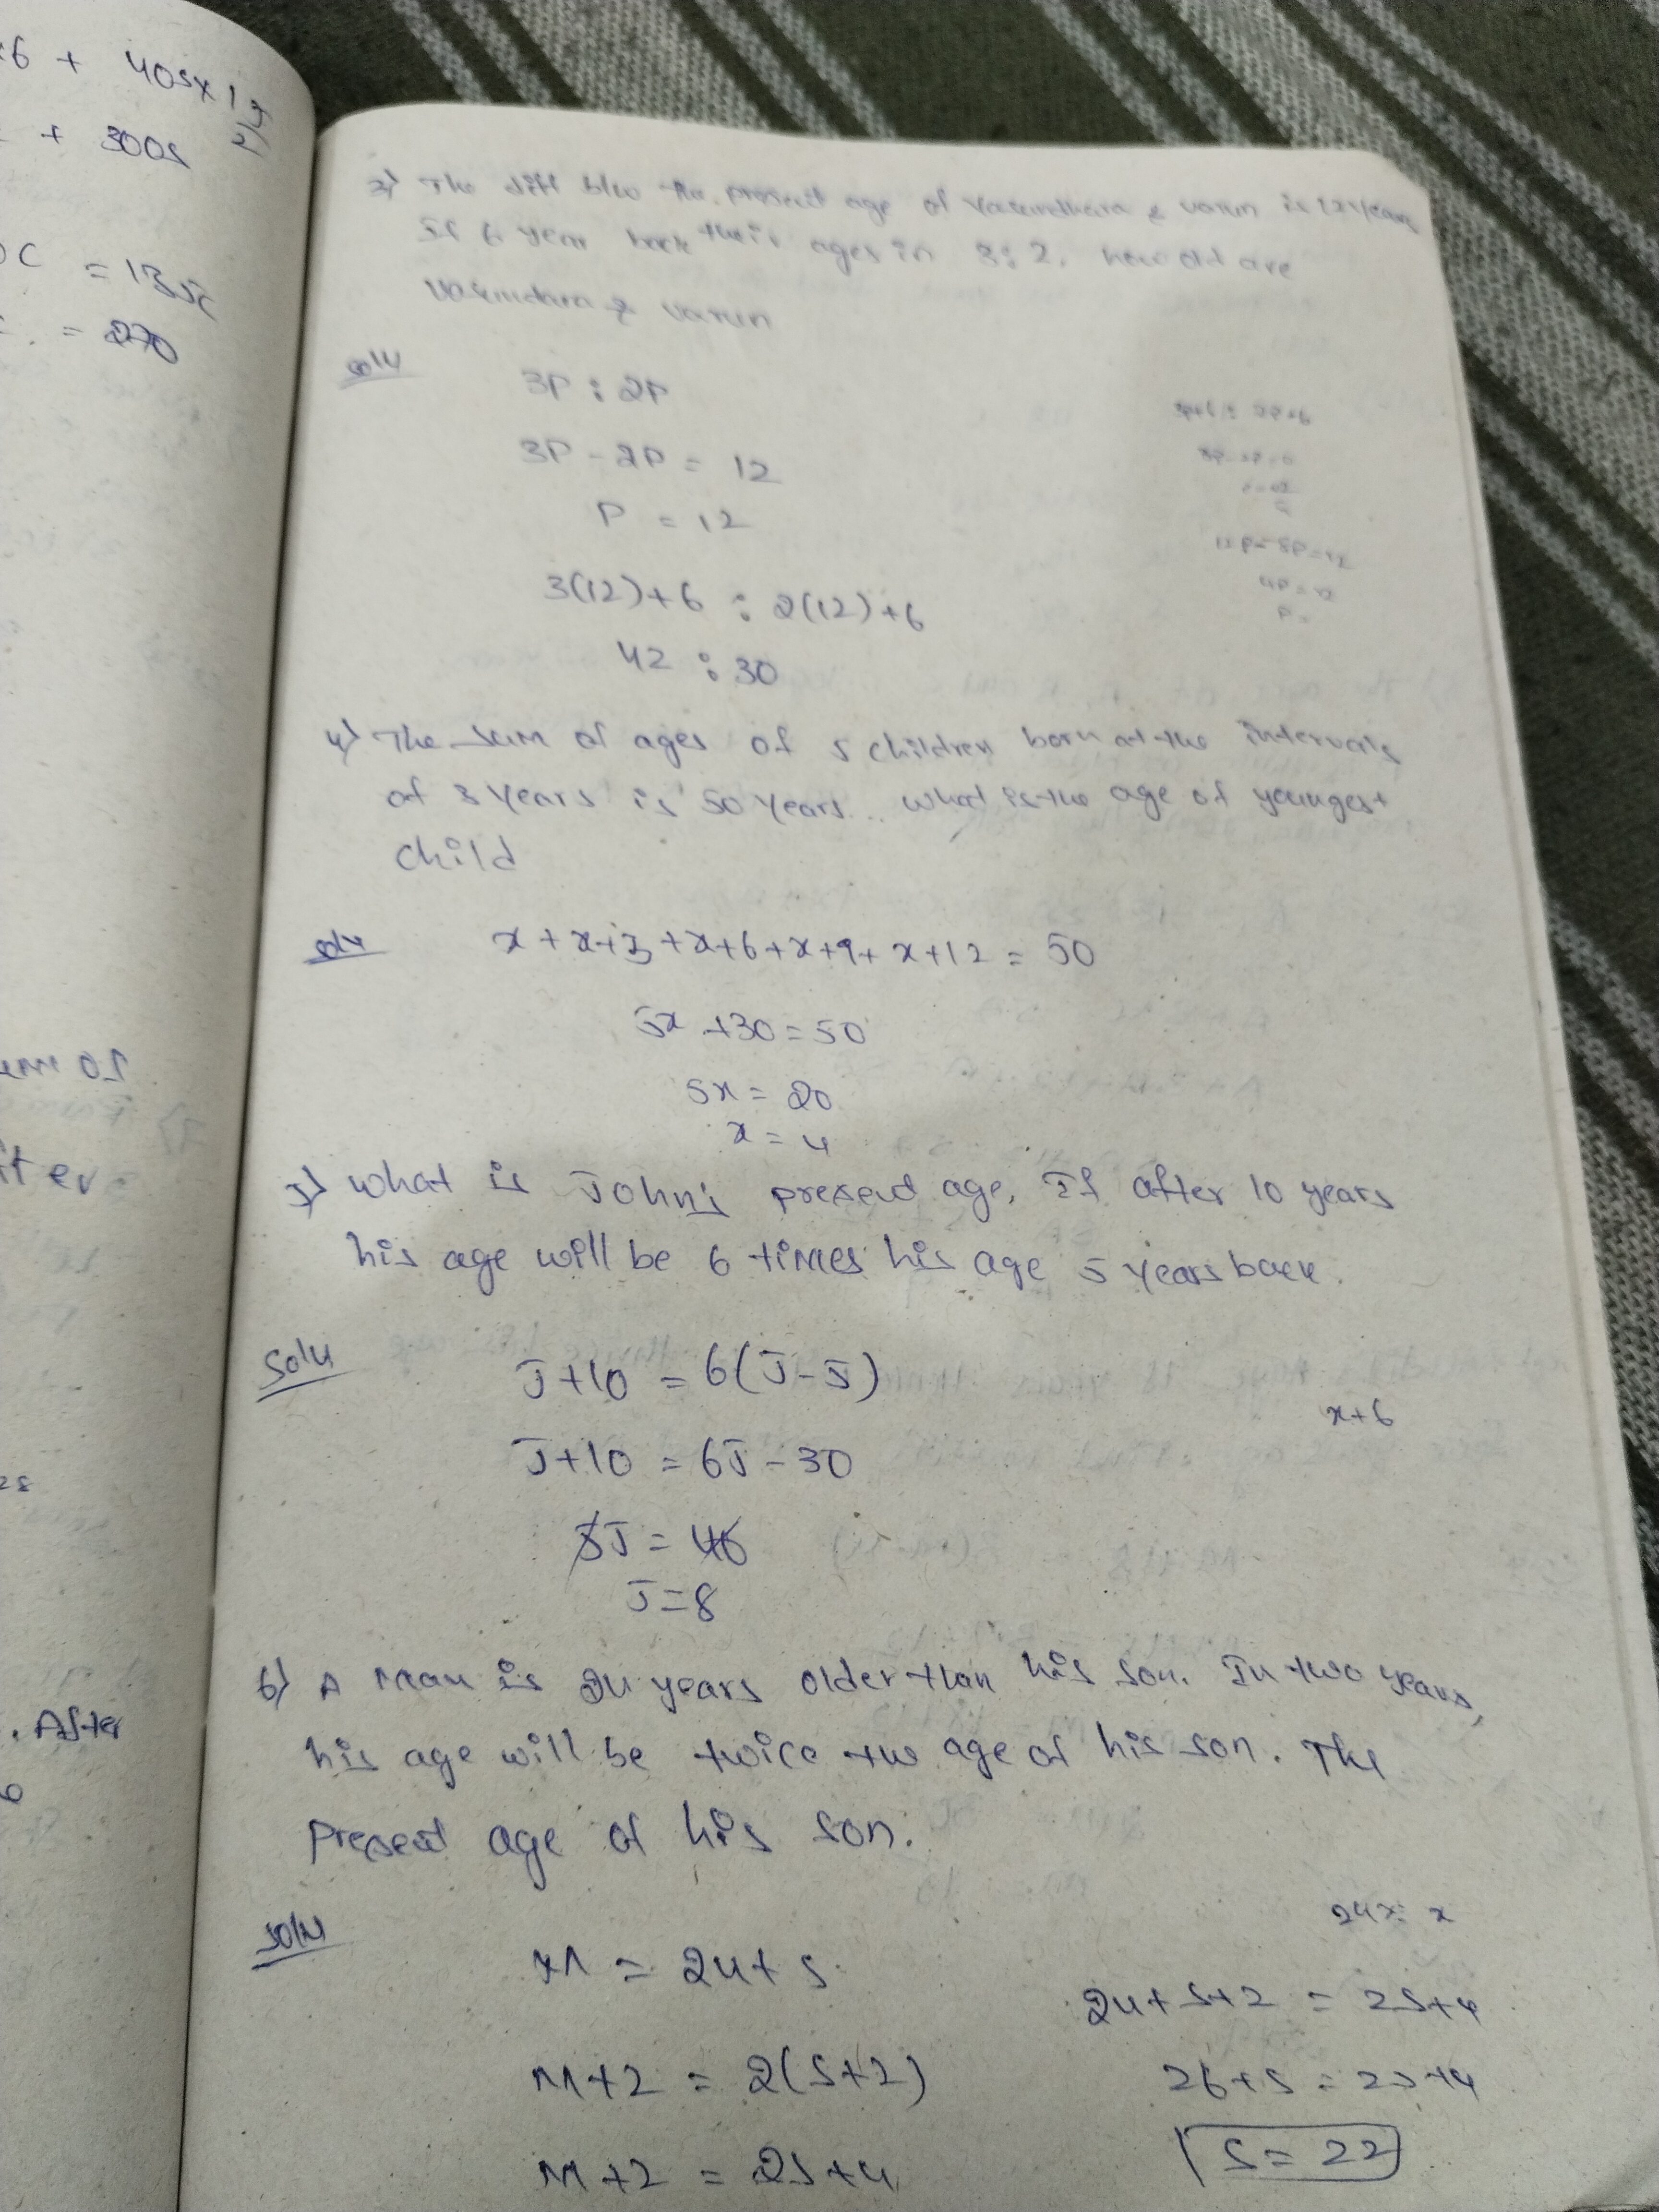 x6 + 405x12
+ 300s
= 135x
= 270
um of
After
3) The diff b/w the present age of Vasundhara & varun is 12 years
If 6 year back their ages in 3:2. how old are
Vasundara & varun
soln
3P : 2P
3P - 2P = 12
P = 12
3(12)+6 : 2(12)+6
42 : 30
3P+6 : 2P+6
12P - 8P = 12
4P = 12
P =
4) The sum of ages of 5 children born at the intervals
of 3 years is 50 years. what is the age of youngest
child
soln
x + x+3 + x+6 + x+9 + x+12 = 50
5x + 30 = 50
5x = 20
x = 4
5) what is John's present age, If after 10 years
his age will be 6 times his age 5 years back.
Soln
J+10 = 6(J-5)
J+10 = 6J - 30
x+6
5J = 40
J = 8
6) A man is 24 years older than his son. In two years,
his age will be twice the age of his son. The
present age of his son.
soln
24x : x
M = 24 + s
24 + s + 2 = 2s + 4
M+2 = 2(s+2)
26 + s = 2s + 4
M+2 = 2s+4
s = 22